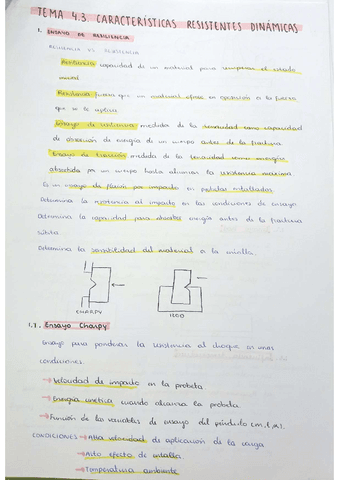 TEMA 4.3. CARACTERÍSTICAS RESISTENTES DINÁMICAS
1. ENSAYO DE RESILIENCIA
RESILIENCIA VS RESISTENCIA
Resiliencia capacidad de un material para recuperar el estado
inicial
Resistencia fuerza que un material ofrece en oposición a la fuerza
que se le aplica.
Ensayo de resiliencia medida de la tenacidad como capacidad
de absorción de energía de un cuerpo antes de la fractura
Ensayo de tracción medida de la tenacidad como energía
absorbida por un cuerpo hasta alcanzar la resistencia máxima
Es un ensayo de flexión por impacto en probetas entalladas
Determina la resistencia al impacto en las condiciones de ensayo
Determina la capacidad para absorber energía antes de la fractura
súbita.
Determina la sensibilidad del material a la entalla.
CHARPY
IZOD
1.1. Ensayo Charpy.
Ensayo para ponderar la resistencia al choque en unas
condiciones.
→ Velocidad de impacto en la probeta
→ Energía cinética cuando alcanza la probeta
→ Función de las variables de ensayo del péndulo
CONDICIONES → Alta velocidad de aplicación de la carga
→ Alto efecto de entalla.
→ Temperatura ambiente